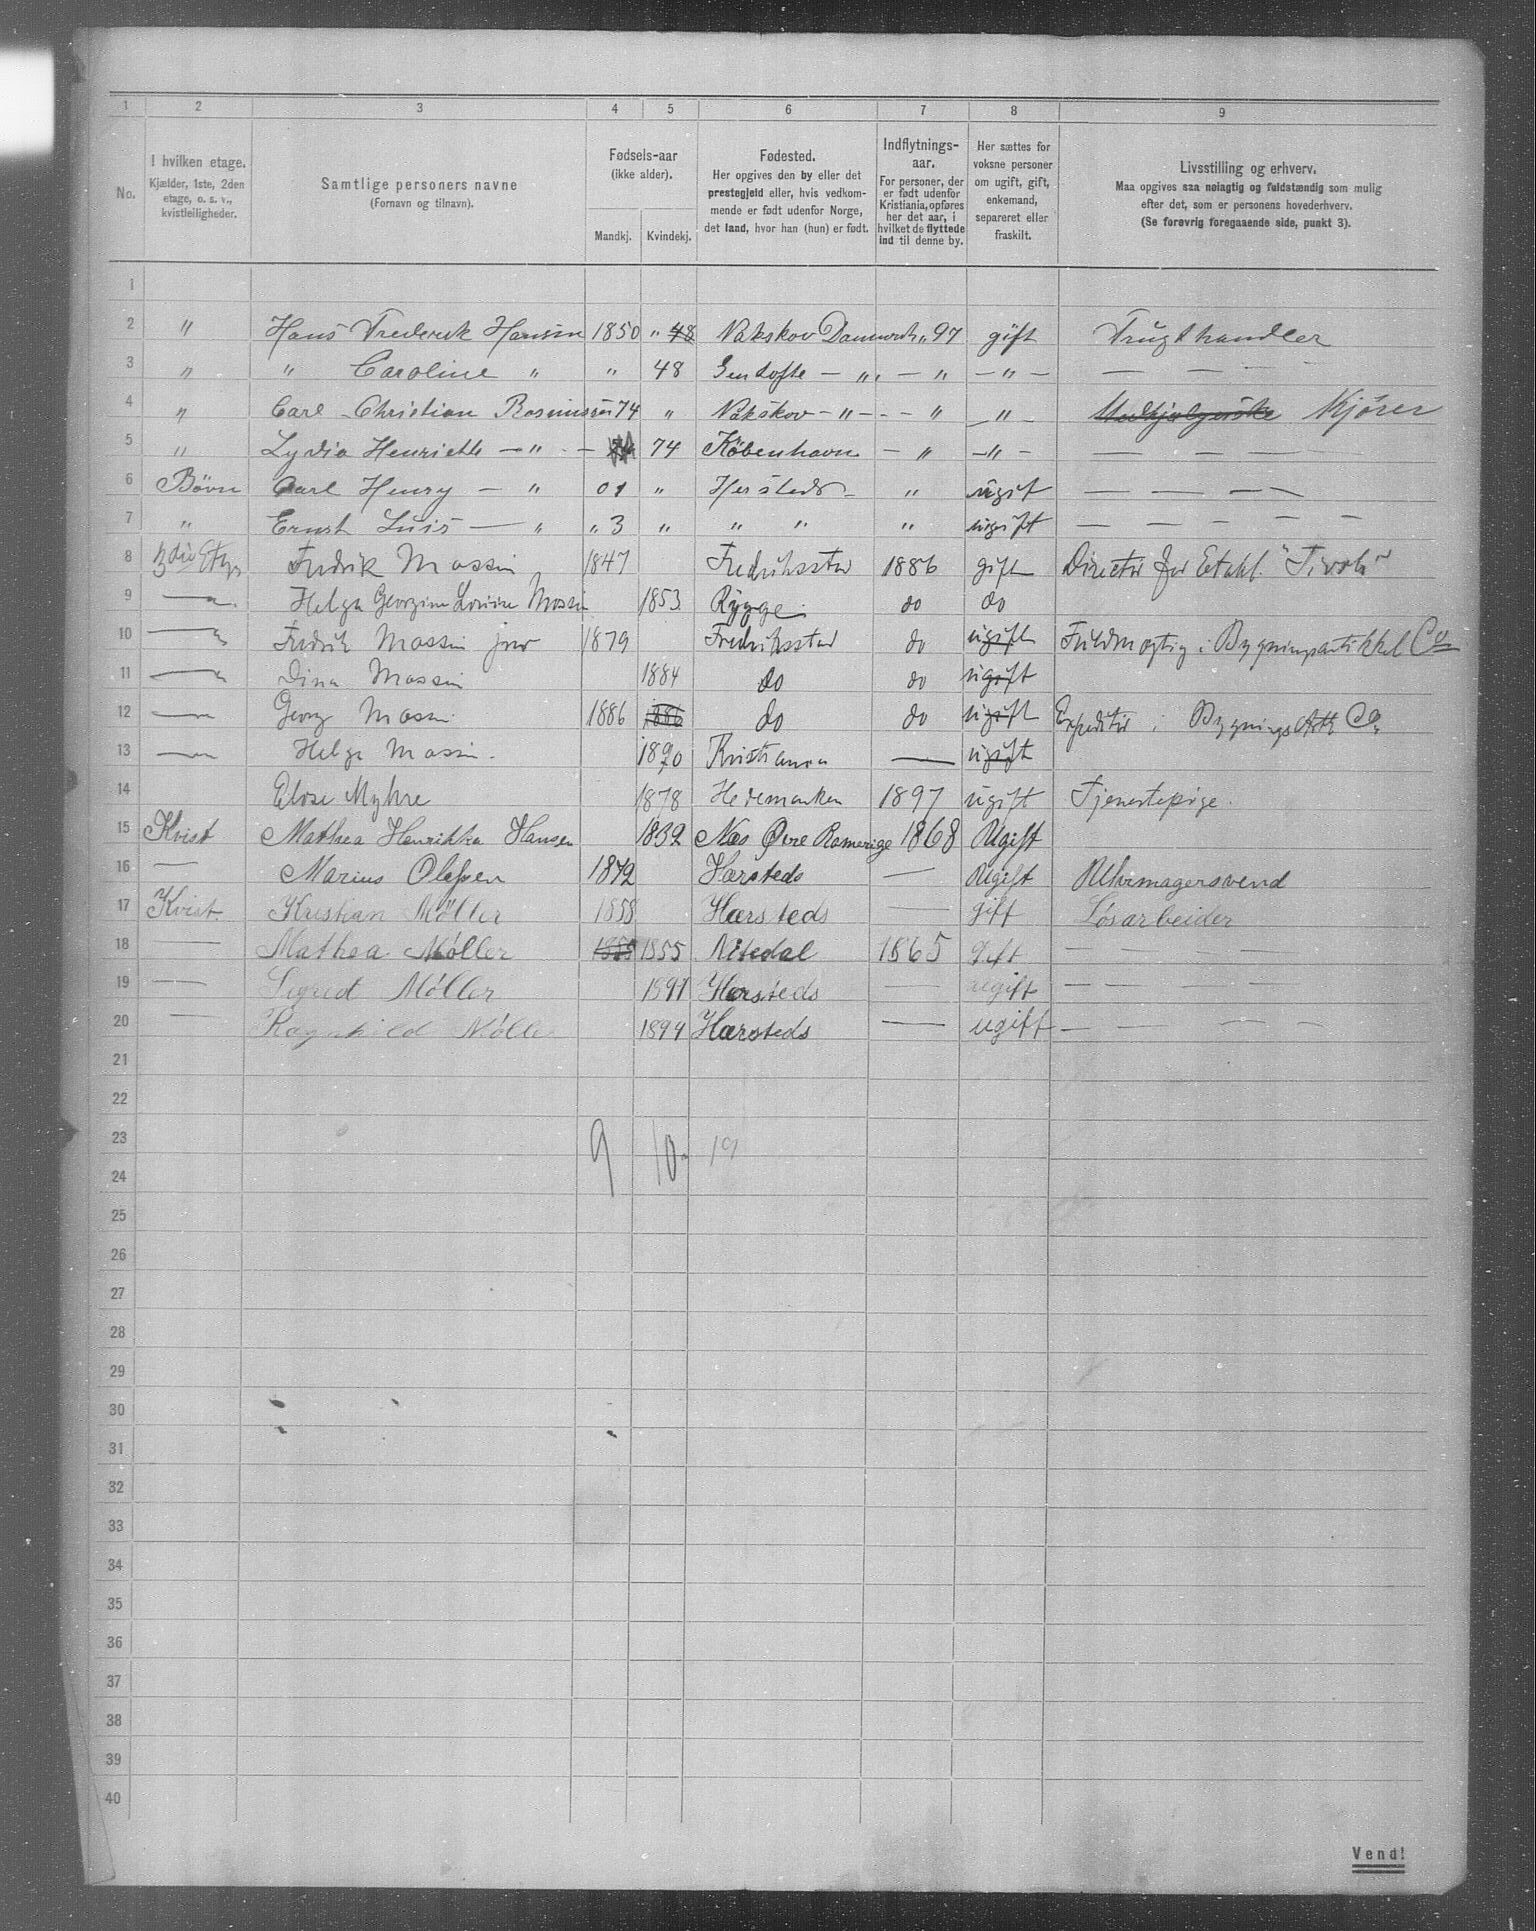 1 2 3 4 5 6 7 8 9
No.
I hvilken etage.
Kjælder, 1ste, 2den
etage, o. s. v.,
kvistleiligheder.
Samtlige personers navne
(Fornavn og tilnavn).
Fødsels-aar
(ikke alder).
Mandkj. Kvindekj.
Fødested.
Her opgives den by eller det
prestegjeld eller, hvis vedkom-
mende er født udenfor Norge,
det land, hvor han (hun) er født.
Indflytnings-
aar.
For personer, der
er født udenfor
Kristiania, opføres
her det aar, i
hvilket de flyttede
ind til denne by.
Her sættes for
voksne personer
om ugift, gift,
enkemand,
separeret eller
fraskilt.
Livsstilling og erhverv.
Maa opgives saa nøiagtig og fuldstændig som mulig
efter det, som er personens hovederhverv.
(Se forøvrig foregaaende side, punkt 3).
1
2 " Hans Frederik Hansen 1850 " 48 Nakskov Danmark " 97 gift Frugthandler
3 " " Caroline " " 48 Gentofte — " — " — " — — — —
4 " Carl Christian Rasmussen 74 " Nakskov — " — - " — " — Kjører
5 " Lydia Henriette — " — 74 København — " — " — — — — —
6 Børn Carl Henry — " 01 " Hersteds " ugift — — — —
7 " Ernst Luis — " " 3 " " " " ugift — — — — —
8 3die Etage Fredrik Massin 1847 Fredriksstad 1886 gift Director for Etabl. "Tivoli"
9 — " Helga Georgine Lovise Massin 1853 Rygge do do
10 — " Fredrik Massin jnr 1879 Fredriksstad do ugift Fuldmægtig i Bygningsartikkel Co
11 — " Dina Massin 1884 do do ugift
12 — " Georg Massin 1886 1886 do do ugift Expeditør i Bygnings Artk Co.
13 — " Helga Massin. 1890 Kristiania — ugift
14 Elose Myhre 1878 Hedemarken 1897 ugift Tjenestepige.
15 Kvist Mathea Henrikka Hansen 1832 Næs Øvre Romerige 1868 Ugift
16 — Marius Olessen 1872 Hærsteds — Ugift Uhrmagersvend
17 Kvist. Kristian Møller 1858 Hærsteds — gift Løsarbeider
18 — Mathea Møller 1855 1855 Nitedal 1865 gift — — — —
19 — Sigrid Møller 1891 Hærsteds — ugift — — — —
20 — Ragnhild Møller 1894 Hærsteds — ugift — — — —
21
22
23 9 10 19
24
25
26
27
28
29
30
31
32
33
34
35
36
37
38
39
40
Vend!